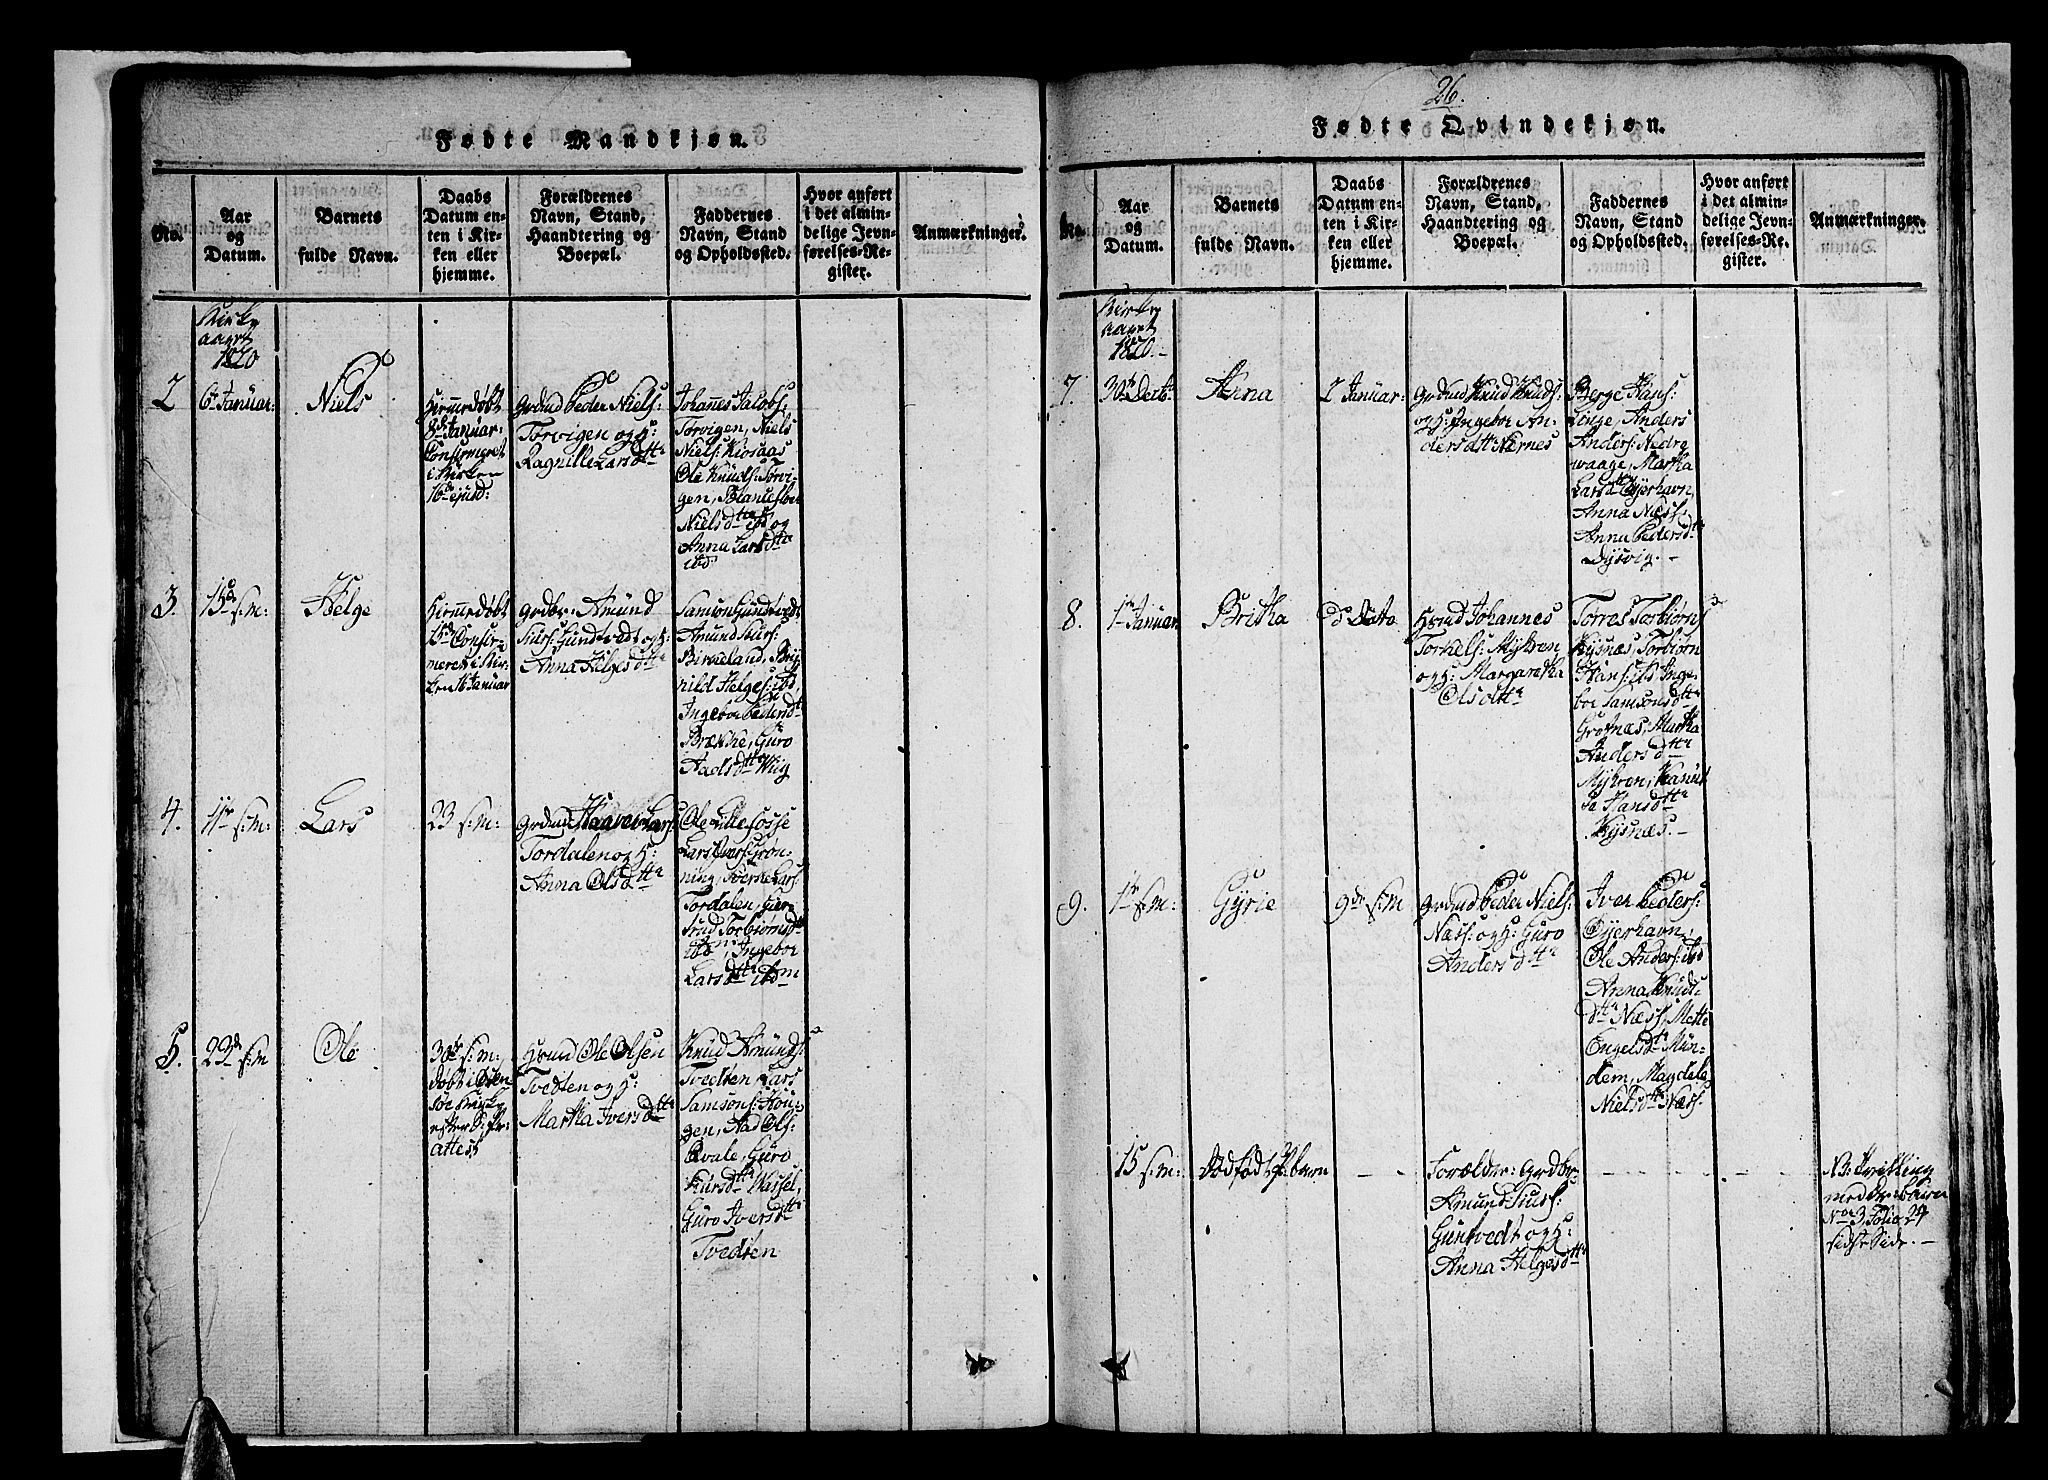 Fødte Mandkjøn.
No.
Aar
og
Datum.
Barnets
fulde Navn.
Daabs
Datum en-
ten i Kir-
ken eller
hjemme.
Forældrenes
Navn, Stand,
Haandtering og
Boepæl.
Faddernes
Navn, Stand
og Opholdssted.
Hvor anført
i det almin-
delige Jevn-
førelses-Re-
gister.
Anmærkninger.
Kirke
aaret
1820
2
6te Januar:
Niels
Hiemmedøbt
8de Januar:
Confirmeret
i Kirken
16de ejusd:
Grdmd Peder Niels:
Tørvigen og H:
Ragnille Larsdttr
Johannes Jacobs:
Tørvigen, Niels
Niels: Kiosaas
Ole Knuds: Tørvi-
gen,
Nielsdtter ibd og
Anna Larsdttr
ibd
3.
15de s: m:
Helge
Hiemmedøbt
15de Confir-
meret i Kir-
ken 16 Januar
Grdbr: Amund
Siurs: Gundtvedt og H:
Anna Helgesdttr
Samson Gundtvedt
Amund Siurs:
Birkeland, Bry-
nild Helges: ibd,
Ingebor Pedersdt
Brække, Guro
Aadsdttr Wiig
4.
11te s: m:
Lars
23 s: m:
Grdmd Haaver Lars:
Tordalen og H:
Anna Olsdttr
Ole Lillefosse
Lars Ivers: Grøn-
ning, Sverke Lars:
Tordalen, Gur-
trud Torbiørnsdt
ibd, Ingebor
Larsdttr ibdm
5.
23de s: m
Ole
30de s: m:
døbt i Osten-
søe Kirke
efter Pr:
attest
Hsmd Ole Olsen
Tvedten og H:
Martha Iversdttr
Knud Amunds:
Tvedten, Lars
Samsons: Hou-
gen, Aad Ols:
Qvale, Guro
Siursdttr Wassel,
Guro Iversdttr
Tvedten
26.
Fødte Qvindekjøn.
No.
Aar
og
Datum.
Barnets
fulde Navn.
Daabs
Datum en-
ten i Kir-
ken eller
hjemme.
Forældrenes
Navn, Stand,
Haandtering og
Boepæl.
Faddernes
Navn, Stand
og Opholdssted.
Hvor anført
i det almin-
delige Jevn-
førelses-Re-
gister.
Anmærkninger.
Kirke
aaret
1820.-
7.
30te Decbr
Anna
2 Januar:
Grdmd Knud Knuds:
og H: Ingebor An-
dersdttr Nernes
Berge Hans:
Linge, Anders
Anders: Nedre
waage, Martha
Larsdttr Øyerhavn,
Anna Næss:
Anna Pedersdt
Dysvig.-
8.
1te Januar.
Britha
d Dato
Hsmd Johannes
Torkels: Myhren
og H: Margaretha
Olsdttr
Torres Torbiørns
Kysnæs, Torbiørn
Hans: ib Inge-
bor Samsonsdttr
Grotnæs, Martha
Andersdttr
Myhren,
Hansdttr
Kysnæs.-
9.
1te s: m:
Gyrie
9de s: m
Grdmd Peder Niels:
Næss: og H: Guro
Andersdttr
Iver Peders:
Øyerhavn,
Ole Anders: ibd
Anna Knudt-
dttr Næss: Mette
Engelsdttr Mun-
dem, Magdela
Nielsdttr Næss:
15 s: m:
Dødfødt P: barn
- -
Forældr: Grdbr
Amund Siurs:
Guntvedt og H:
Anna Helgesdttr
NB: Tvilling
med Dr: barn
No 3 Folio 24
sidste Side.-